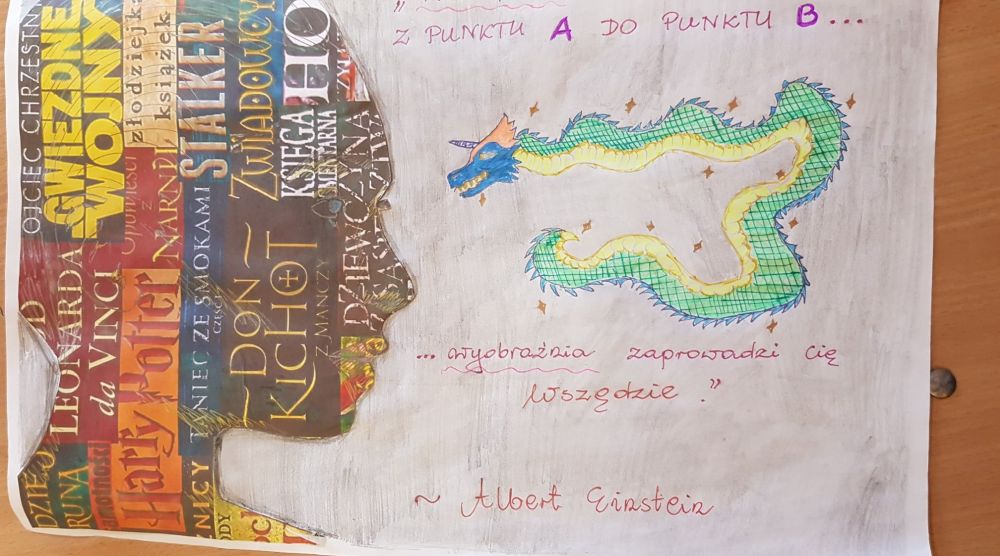 Z PUNKTU A DO PUNKTU B...
... wyobraźnia zaprowadzi cię
wszędzie."
~ Albert Einstein
OJCIEC CHRZESTNY
GWIEZDNE
WOJNY
złodziejka
książek
STALKER
ZWIADOWCY
KSIĘGA
CMENTARNA
HO
Opowieści
z
NARNII
TANIEC ZE SMOKAMI
CZĘŚĆ
DON
KICHOT
Z MANCZY
DZIEWCZYNA
LEONARDA
da VINCI
Harry Potter
DZIEJ
RUNA